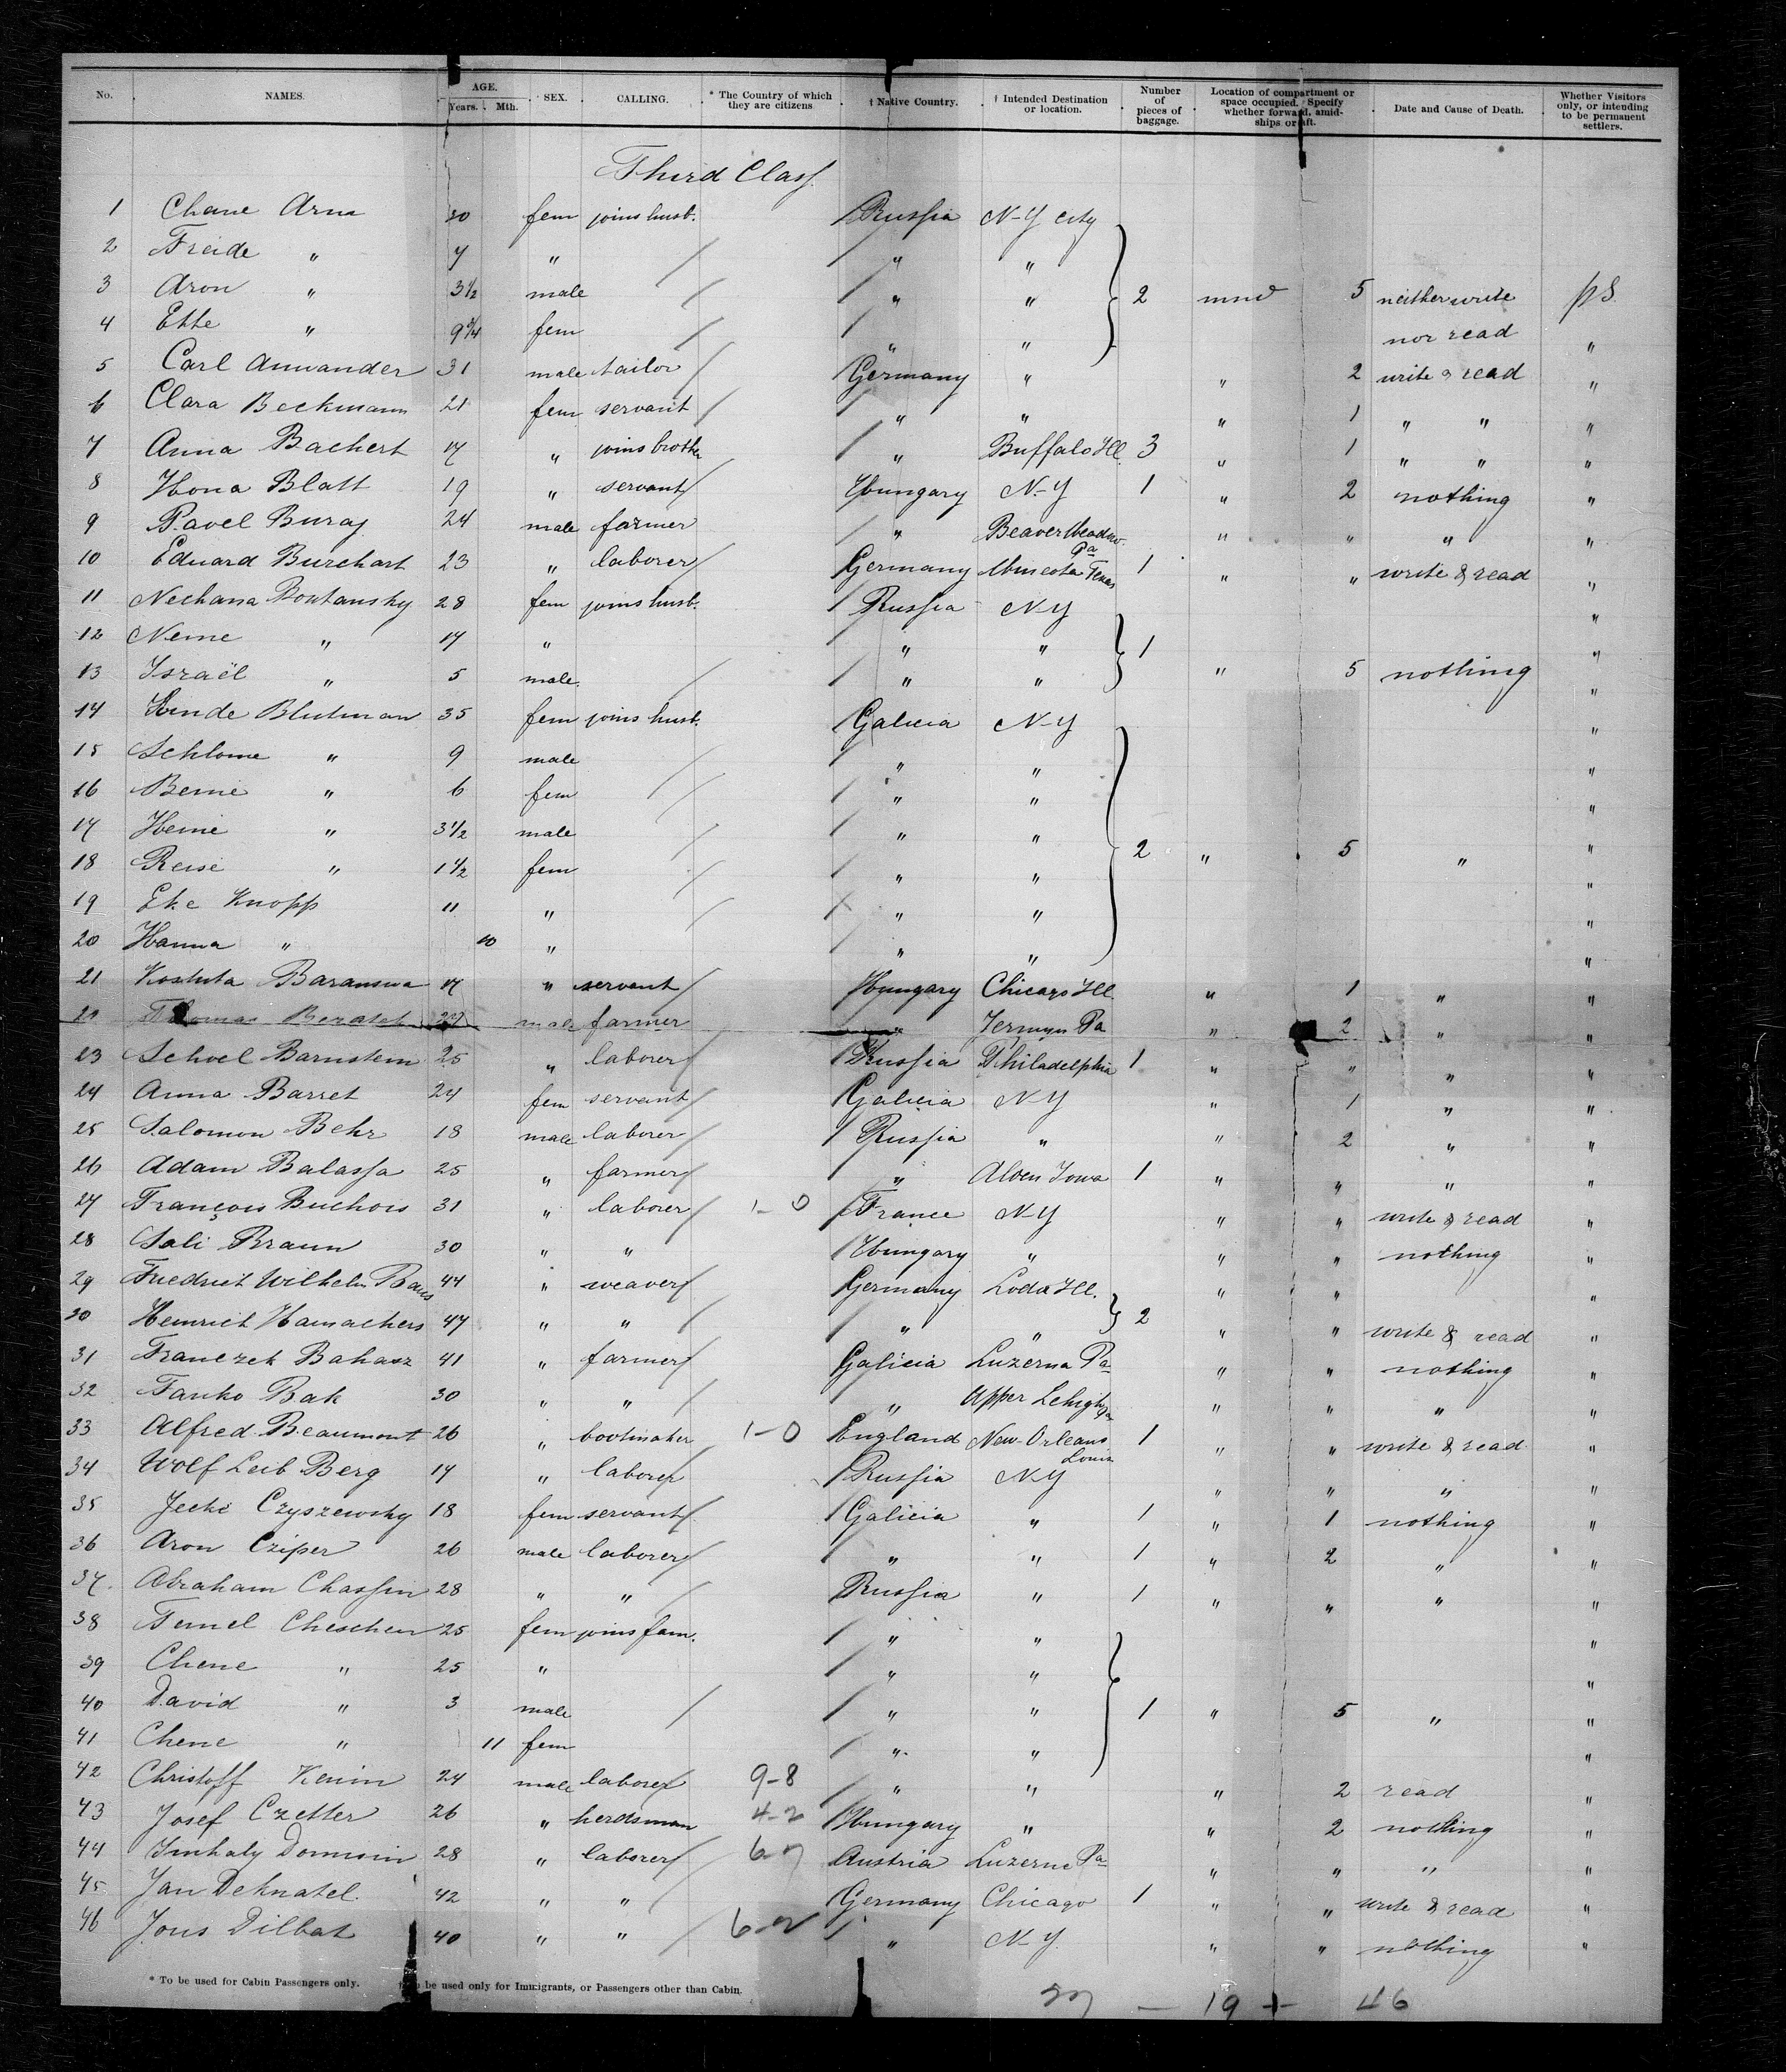 No. NAMES. AGE. Years. Mth. SEX. CALLING. * The Country of which they are citizens † Native Country. † Intended Destination or location. Number of pieces of baggage. Location of compartment or space occupied. Specify whether forward, amidships or aft. Date and Cause of Death. Whether Visitors only, or intending to be permanent settlers.
Third Class
1 Chane Arna 30 fem joins husb. Russia N-Y city
2 Freide " 7 " " "
3 Aron " 3½ male " " 2 mnd 5 neither write pS.
4 Ette " 9¾ fem " " nor read "
5 Carl Anwander 31 male tailor Germany " " 2 write & read "
6 Clara Beckmann 21 fem servant " " " 1 " " "
7 Anna Bachert 17 " joins brother " Buffalo Ill. 3 " 1 " " "
8 Ilona Blatt 19 " servant Hungary N-Y 1 " 2 nothing "
9 Pavel Buraj 24 male farmer " Beaver Meadow Pa " " " "
10 Eduard Burchart 23 " laborer Germany Texas 1 " " write & read "
11 Nechana 28 fem joins husb. Russia N-Y "
12 Neme " 17 " " " 1 "
13 Israël " 5 male " " " 5 nothing "
14 Blutman 35 fem joins husb. Galicia N-Y "
15 Schlome " 9 male " " "
16 Beime " 6 fem " " "
17 Heine " 3½ male " " "
18 Reise " 1½ fem " " 2 " 5 " "
19 Eke Knopp 11 " " " "
20 Hanna " 10 " " " "
21 Baranswa 17 " servant Hungary Chicago Ill. " 1 " "
22 Thomas 27 male farmer " Jermyn Pa " 2 " "
23 Schoel Barnstem 25 " laborer Russia Philadelphia 1 " " " "
24 Anna Barret 24 fem servant Galicia N-Y " 1 " "
25 Salomon Behr 18 male laborer Russia " " 2 " "
26 Adam Balassa 25 " farmer " Alden Iowa 1 " " " "
27 François Buchois 31 " laborer 1-0 France N-Y " " write & read "
28 Sali Braun 30 " " Hungary " " " nothing "
29 Friedrich Wilhelm Baus 44 " weaver Germany Loda Ill. " " "
30 Heinrich Hamachers 47 " " " " 2 " " write & read "
31 Franczek Bahasz 41 " farmer Galicia Luzerna Pa " " nothing "
32 Fanko Bak 30 " " " Upper Lehigh Pa " " " "
33 Alfred Beaumont 26 " bootmaker 1-0 England New-Orleans Louis 1 " " write & read "
34 Wolf Leib Berg 17 " laborer Russia N-Y " " " "
35 Jecki Czyszewsky 18 fem servant Galicia " 1 " 1 nothing "
36 Aron Cziper 26 male laborer " " 1 " 2 " "
37. Abraham Chassin 28 " " Russia " 1 " " " "
38 Femel Cheschen 25 fem joins fam. " " "
39 Chene " 25 " " " "
40 David " 3 male " " 1 " 5 " "
41 Chene " 11 fem " " "
42 Christoff 24 male laborer 9-8 " " " 2 read "
43 Josef Czetter 26 " herdsman 4-2 Hungary " " 2 nothing "
44 28 " laborer Austria Luzerne Pa " " " "
45 Jan Deknatel. 42 " " Germany Chicago 1 " " write & read "
46 Jous Dilbat 40 " " " N-Y. " " nothing "
* To be used for Cabin Passengers only. be used only for Immigrants, or Passengers other than Cabin.
27 — 19 + 46